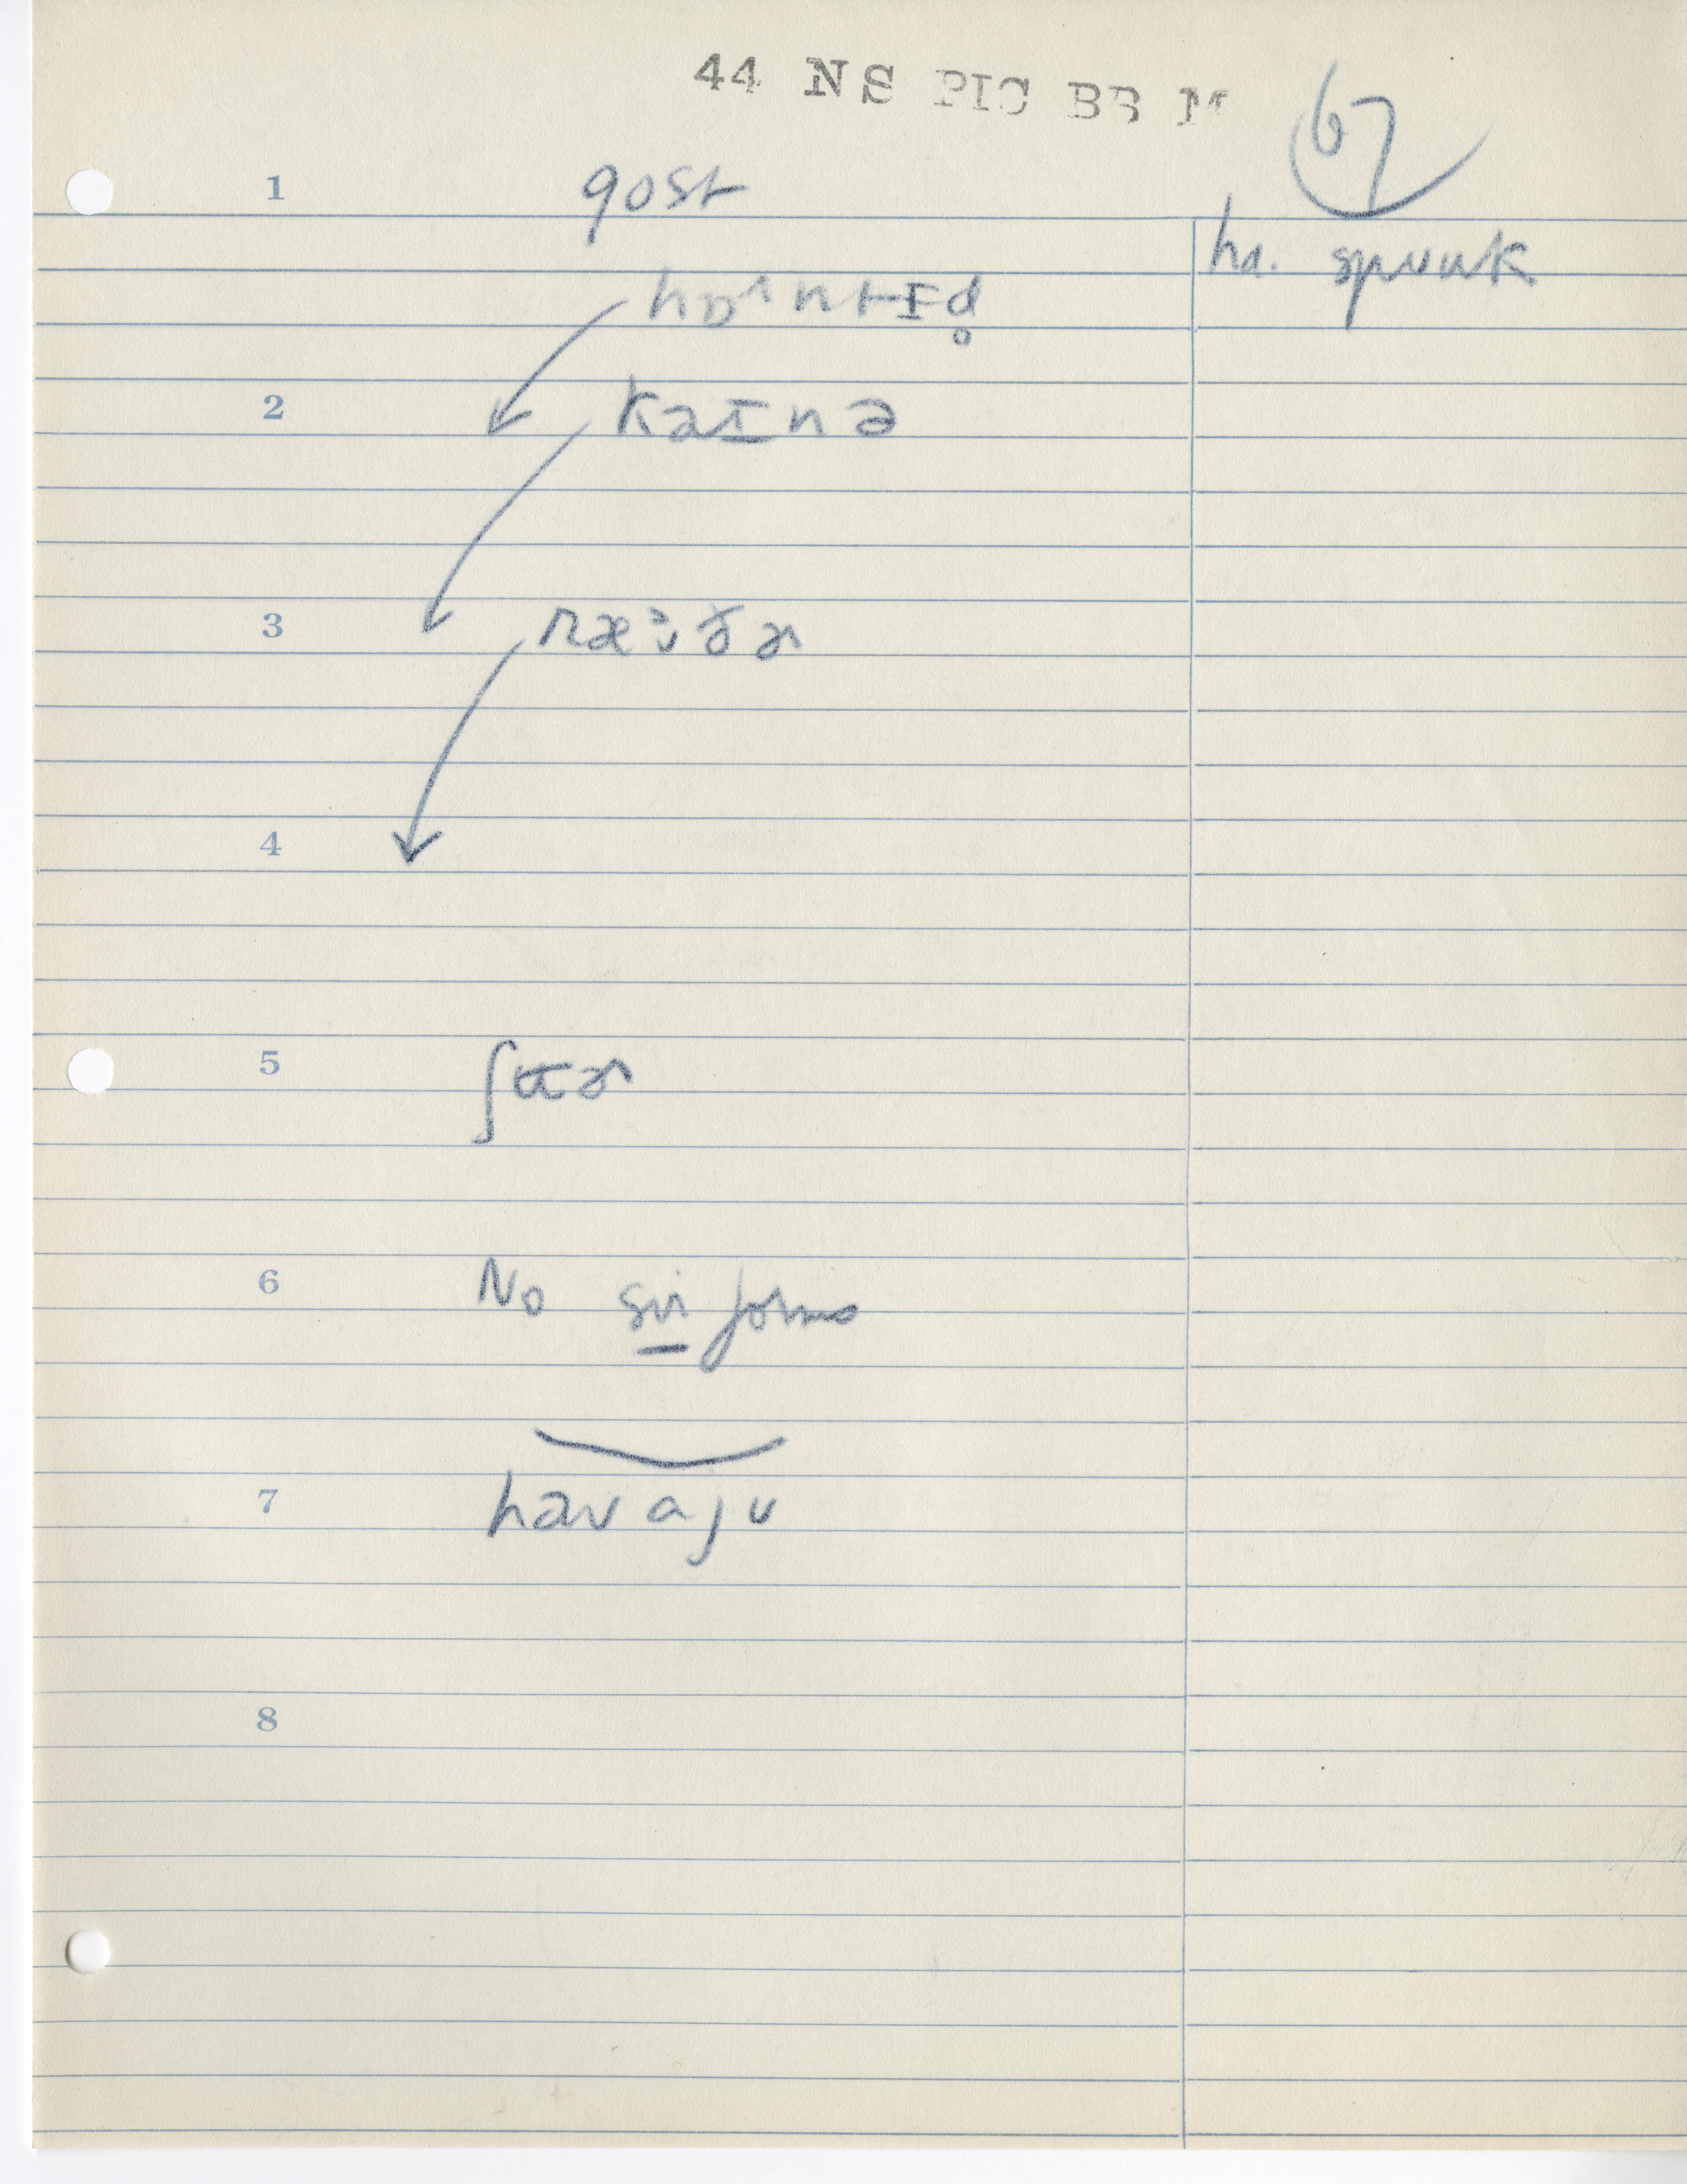 44 NS PIC BB M
67
1 gost
ha. spuuk
2 kaɪnə
3
4
5 ʃʊɚ
6 No sir forms
7 havaju
8